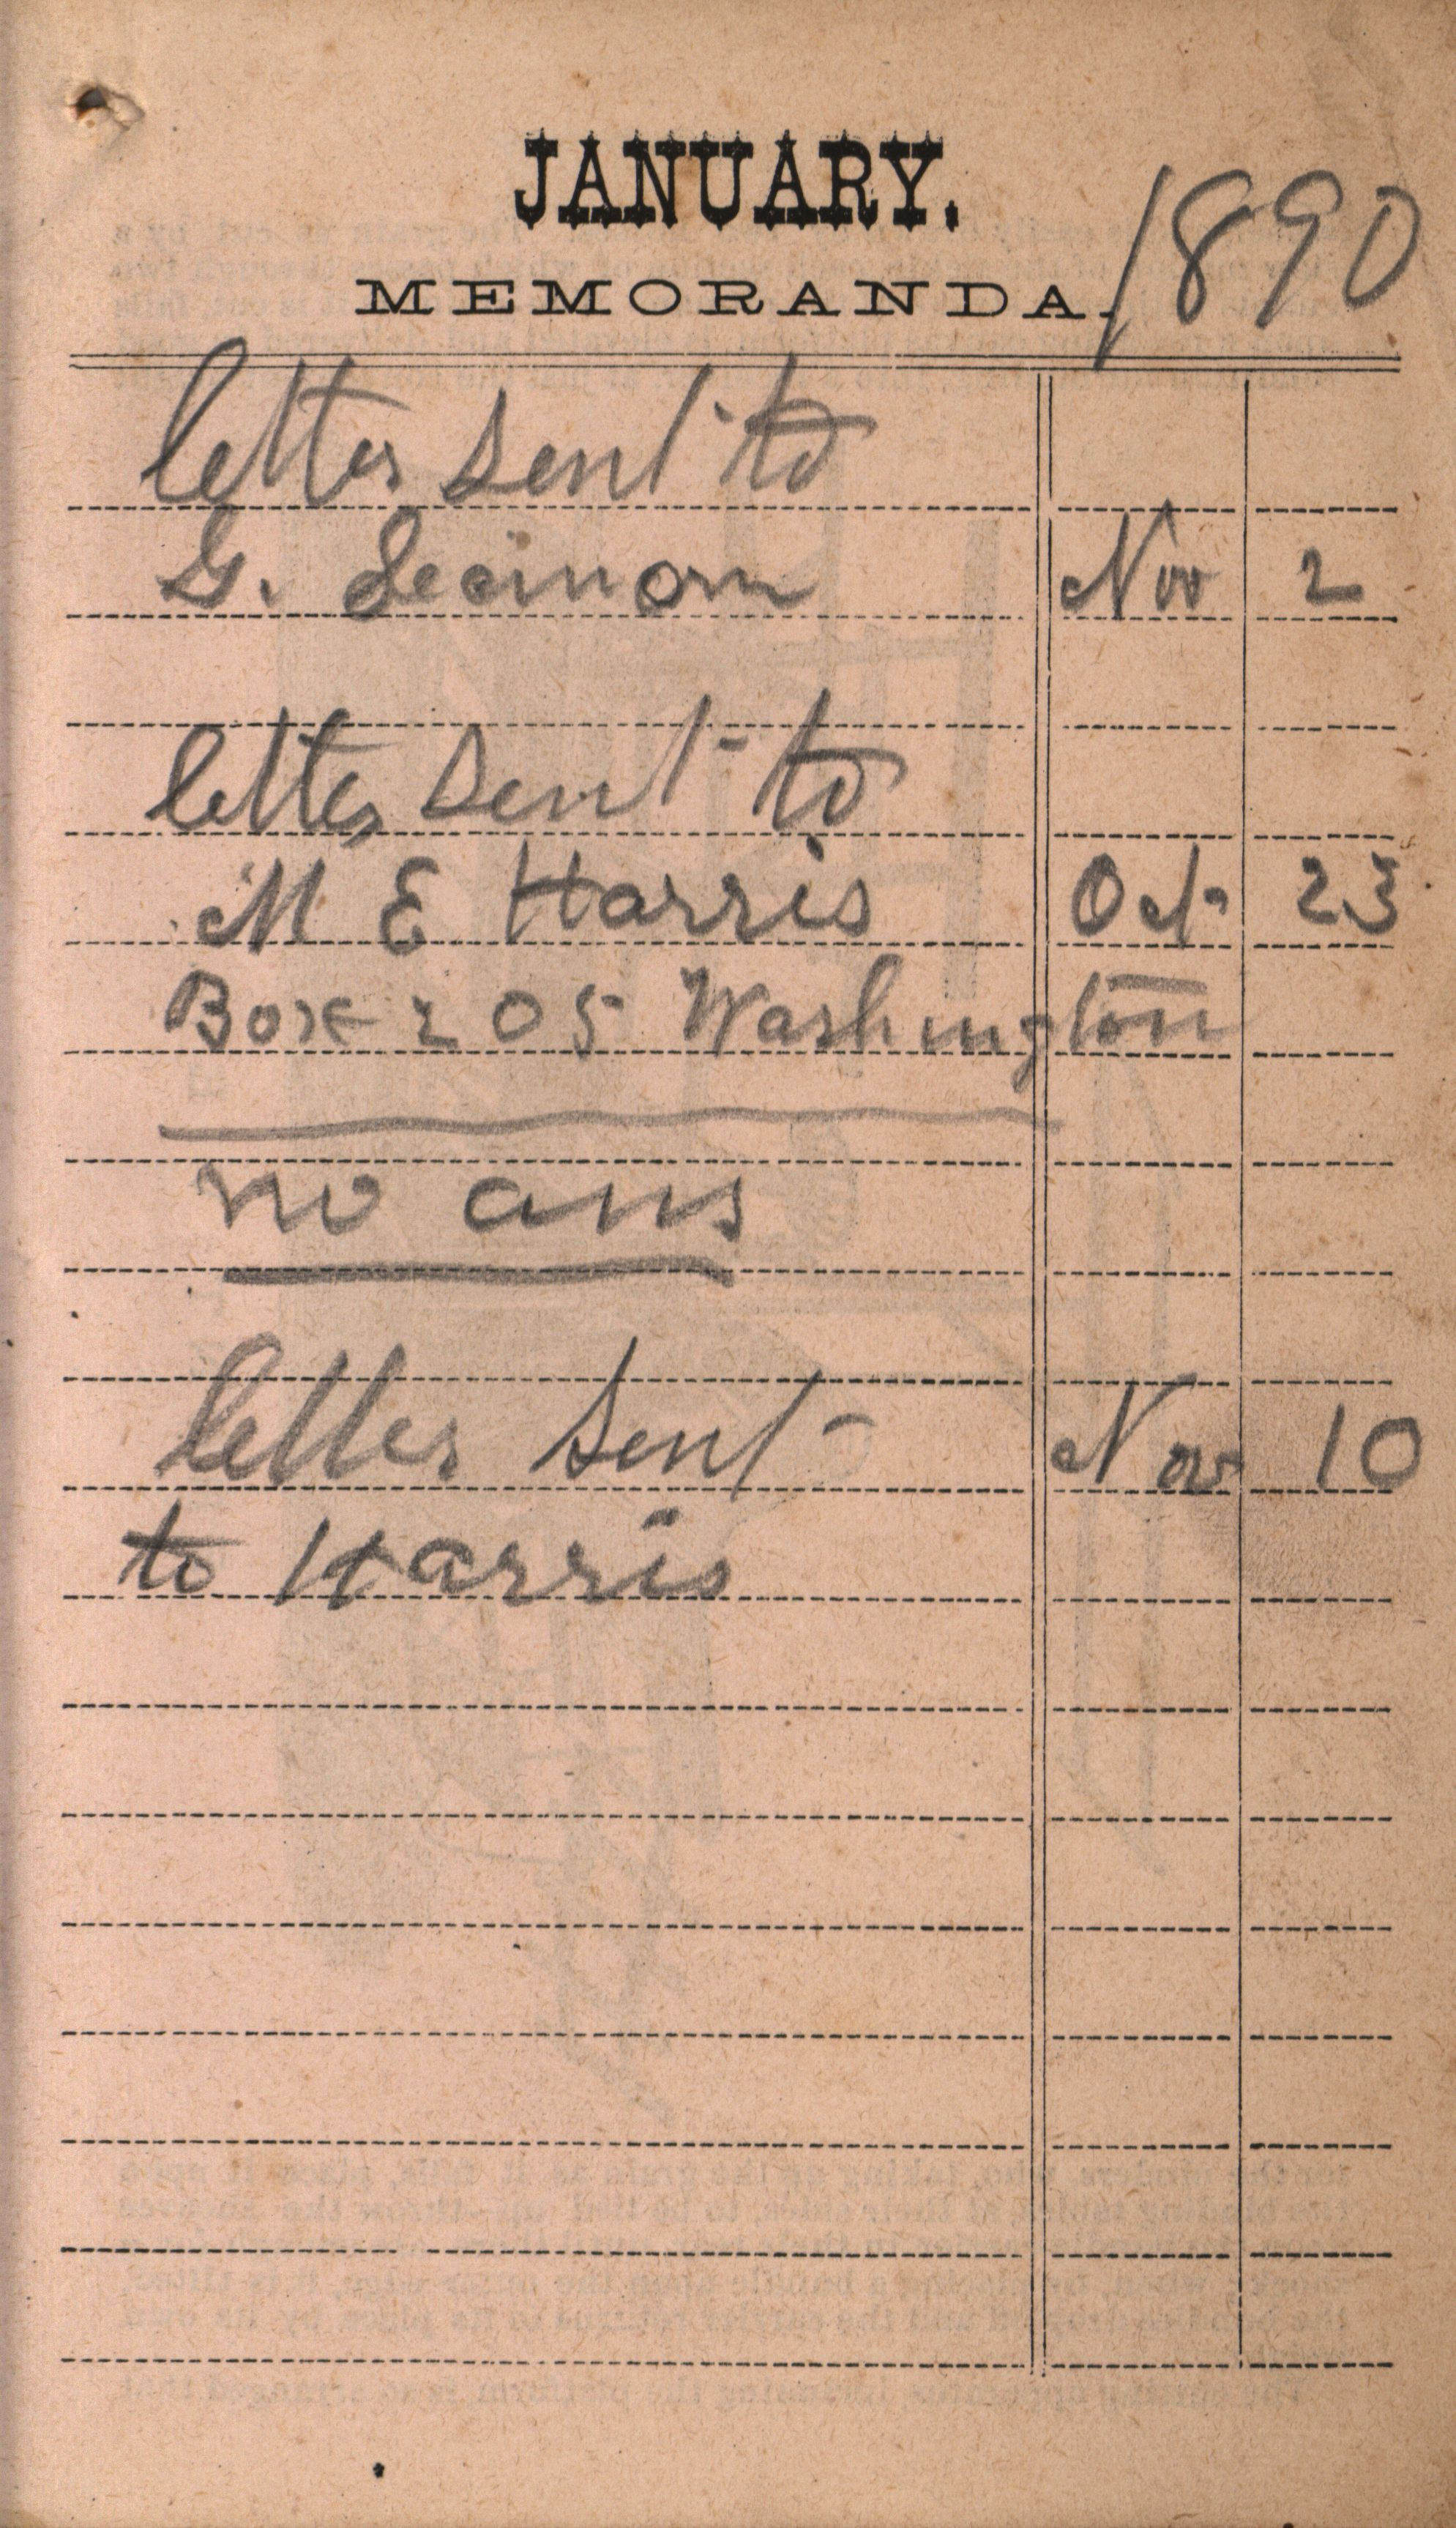 JANUARY.
MEMORANDA. 1890
letter sent to
G. Nov 2
letter sent to
M E Harris Oct 23
Box 205 Washington
no ans
letter sent Nov 10
to Harris